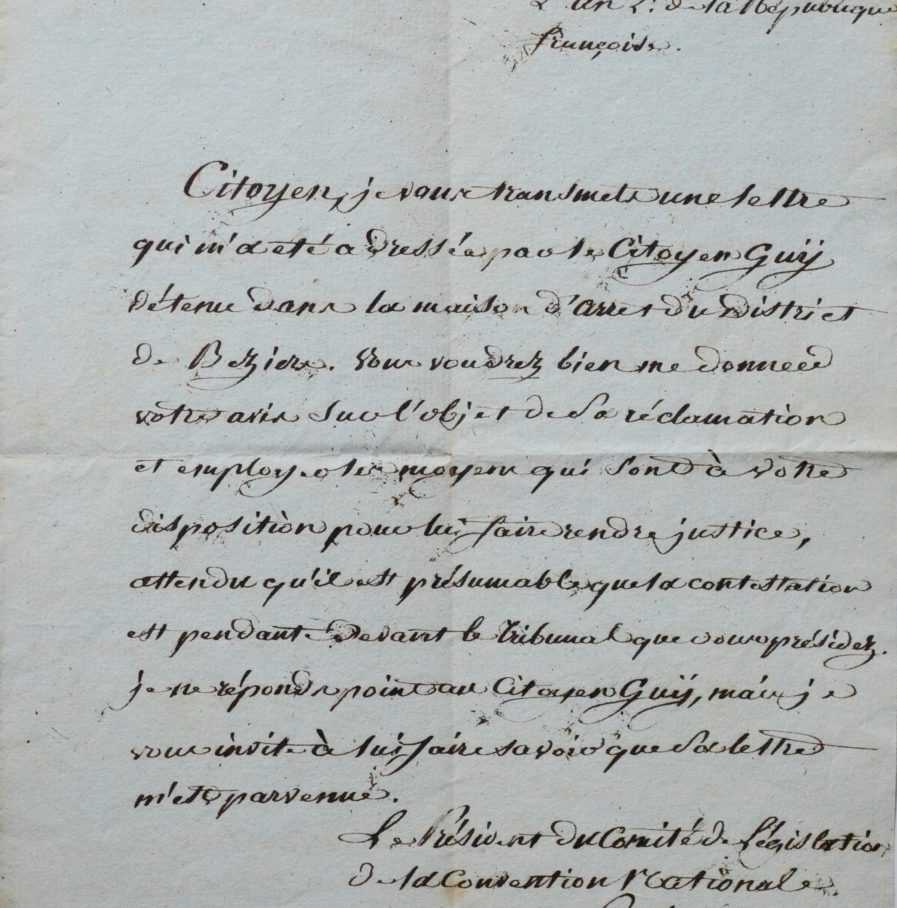 L'an 2.e de la République
françoise.
Citoyen, je vous transmets une lettre
qui m'a eté adressée par le Citoyen Guÿ
détenu dans la maison d'arret du District
de Beziers. Vous voudrez bien me donner
votre avis sur l'objet de sa réclamation
et employer les moyens qui sont à votre
disposition pour lui faire rendre justice,
attendu qu'il est présumable que la contestation
est pendante devant le tribunal que vous présidez.
je ne réponds point au Citoyen Guÿ, mais je
vous invite à lui faire savoir que sa lettre
m'est parvenue.
Le Président du Comité de Législation
de la Convention Nationale